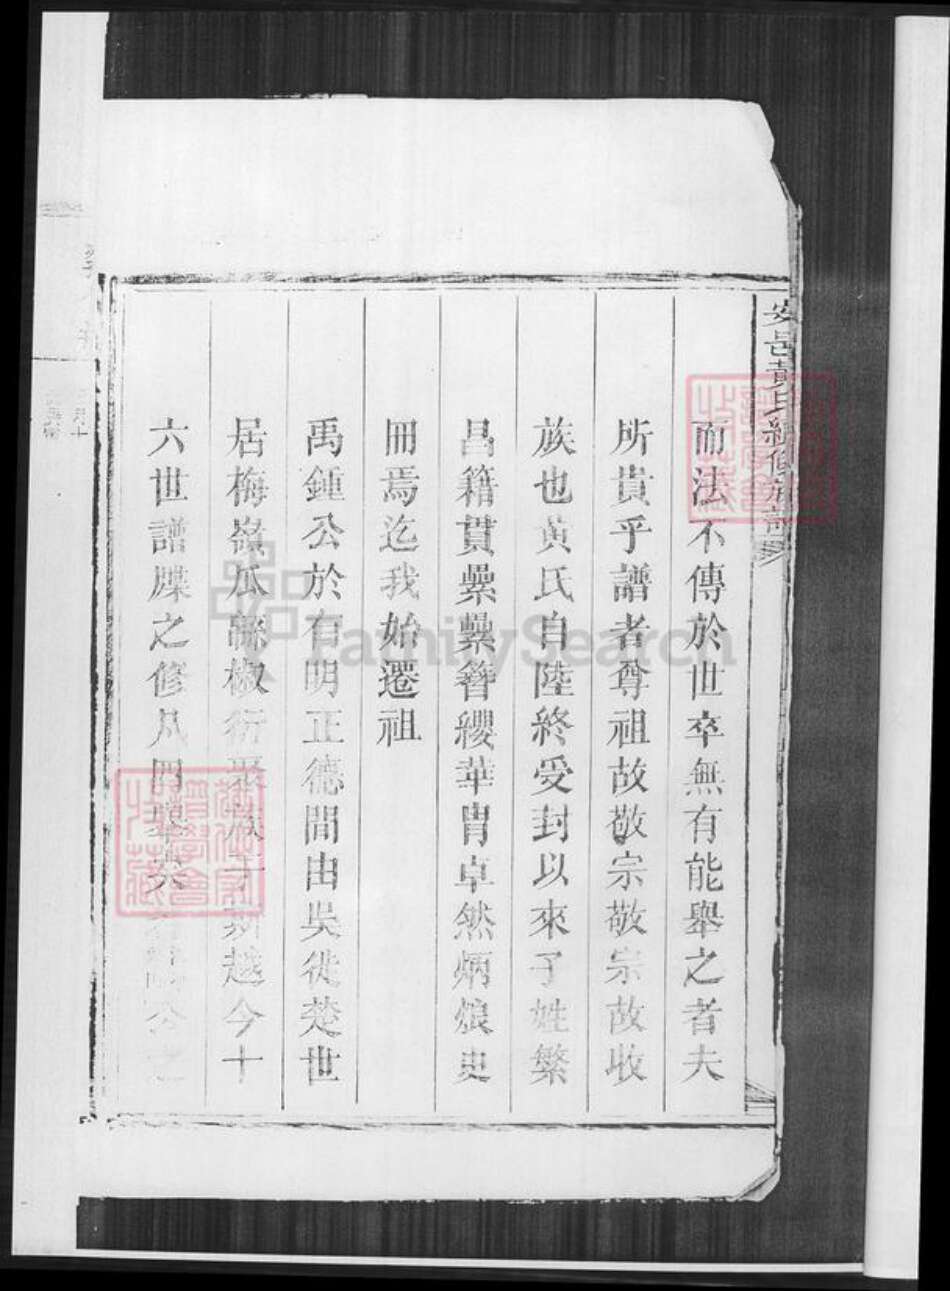 安邑黃氏續修族譜
而法不傳於世卒無有能舉之者夫
所貴乎譜者尊祖故敬宗敬宗故收
族也黃氏自陸終受封以來子姓繁
昌籍貫纍纍簪纓華胄卓然炳烺史
冊焉迄我始遷祖
禹鍾公於有明正德間由吳徙楚世
居梅嶺瓜綿椒衍聚族于斯越今十
六世譜牒之修凡四舉矣
FamilySearch